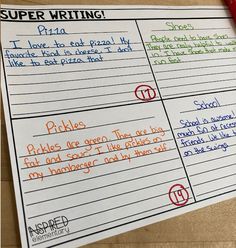 SUPER WRITING!
Pizza
I love to eat pizza! My
favorite kind is cheese. I don't
like to eat pizza that
17
Shoes
People need to have
They are really helpful to
have
run fast
Pickles
Pickles are green. They are big,
fat and sour. I like pickles on
my hamberger and by them self.
19
School
School is awesome!
much fun at recess
friends. I like to
on the swings
INSPIRED
elementary